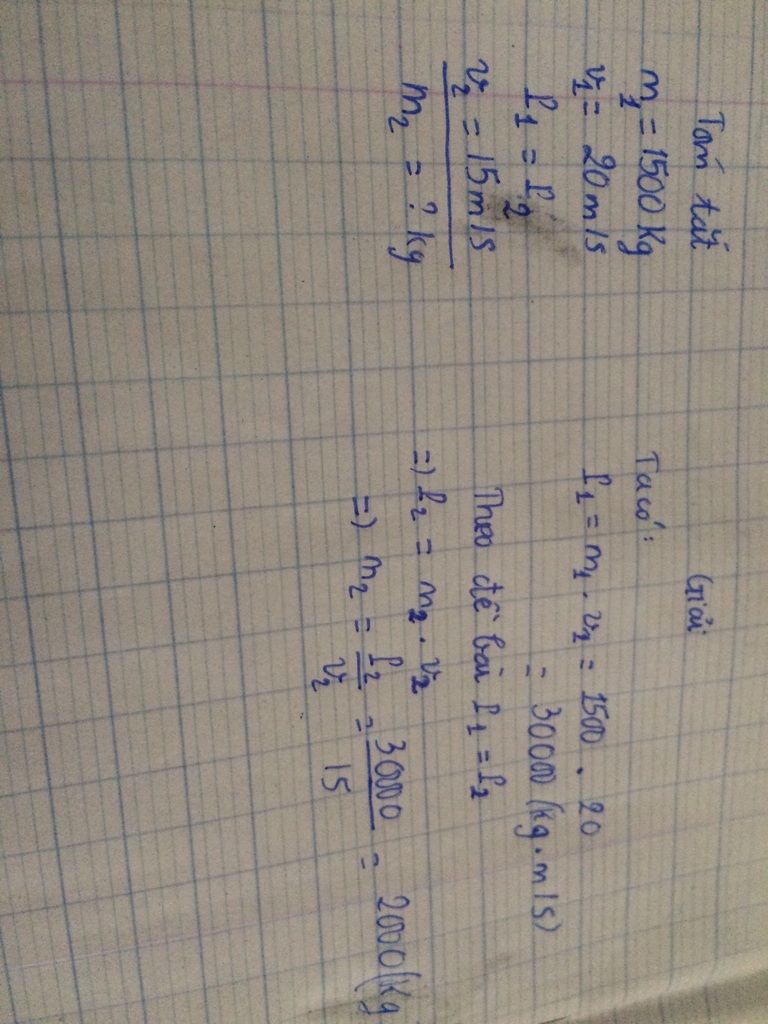 Tóm tắt
m₁ = 1500 kg
v₁ = 20 m/s
P₁ = P₂
v₂ = 15 m/s
m₂ = ? kg
Giải
Ta có:
P₁ = m₁ . v₁ = 1500 . 20
= 30000 (kg.m/s)
Theo đề bài P₁ = P₂
=> P₂ = m₂ . v₂
=> m₂ = P₂/v₂ = 30000/15 = 2000 (kg